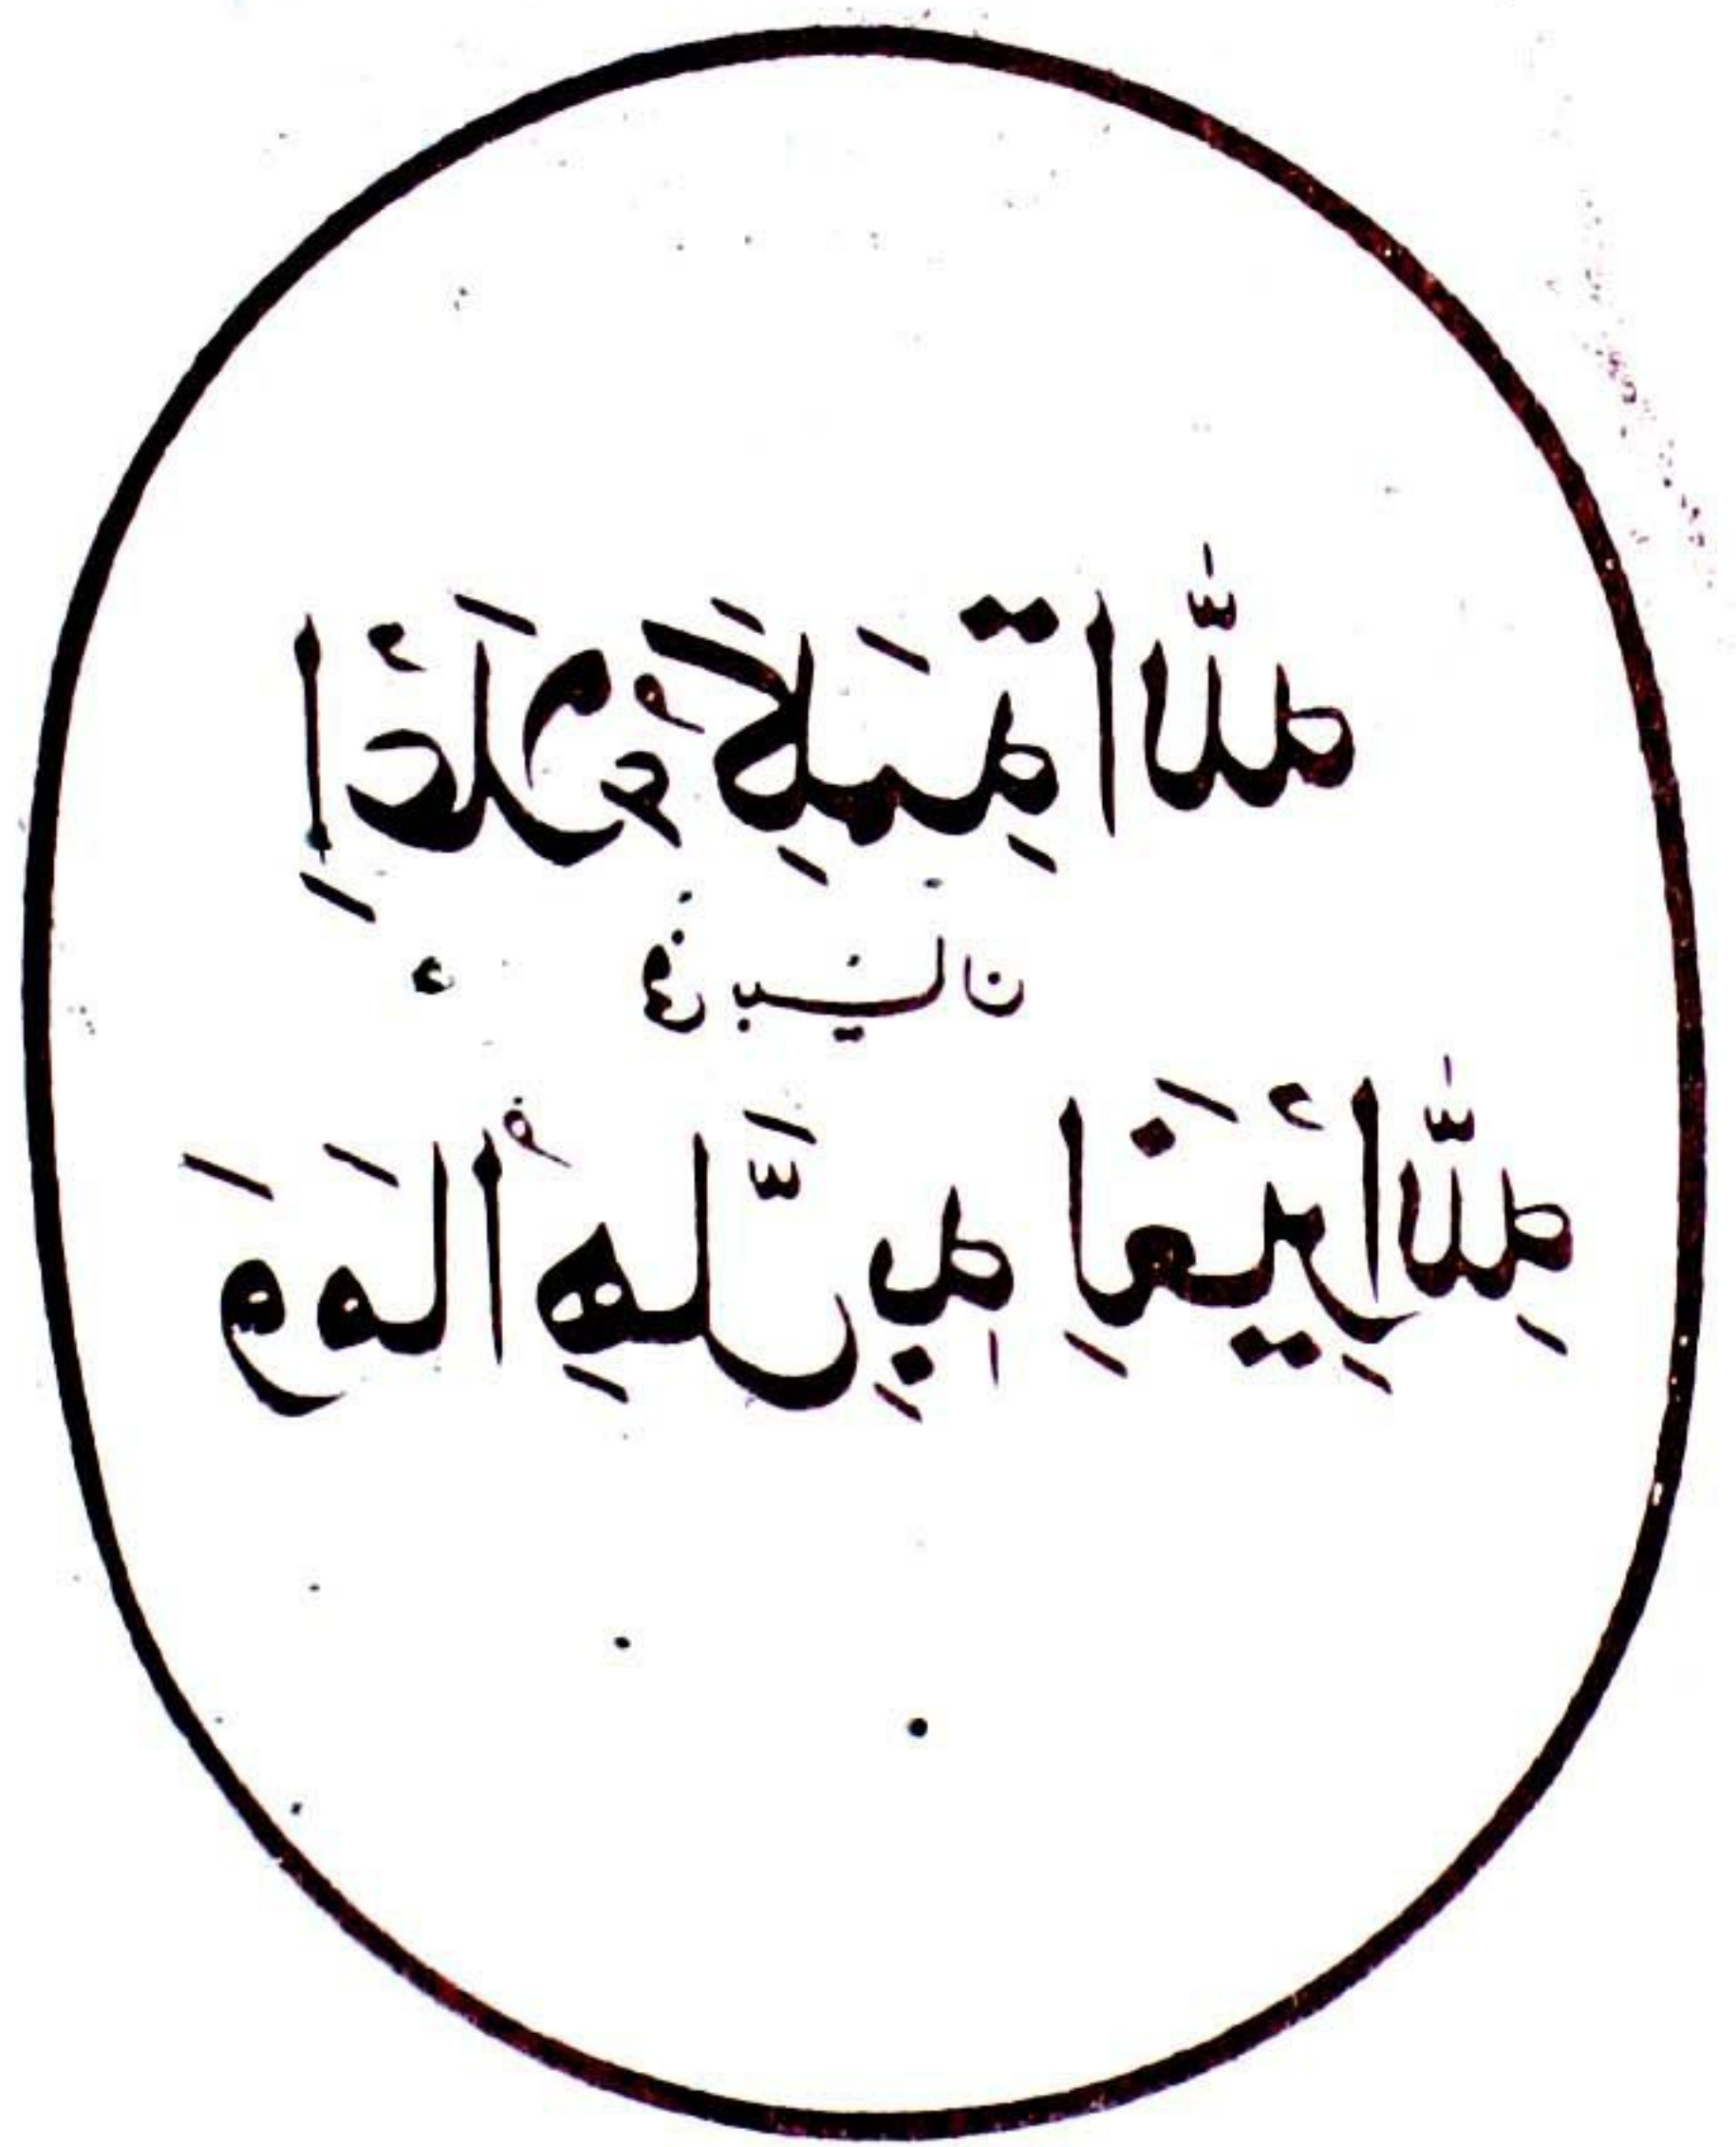 إِعْلَاءُ كَلِمَةِ اللّٰه
فی بیان
وَمَا أُهِلَّ بِهٖ لِغَيْرِ اللّٰهِ